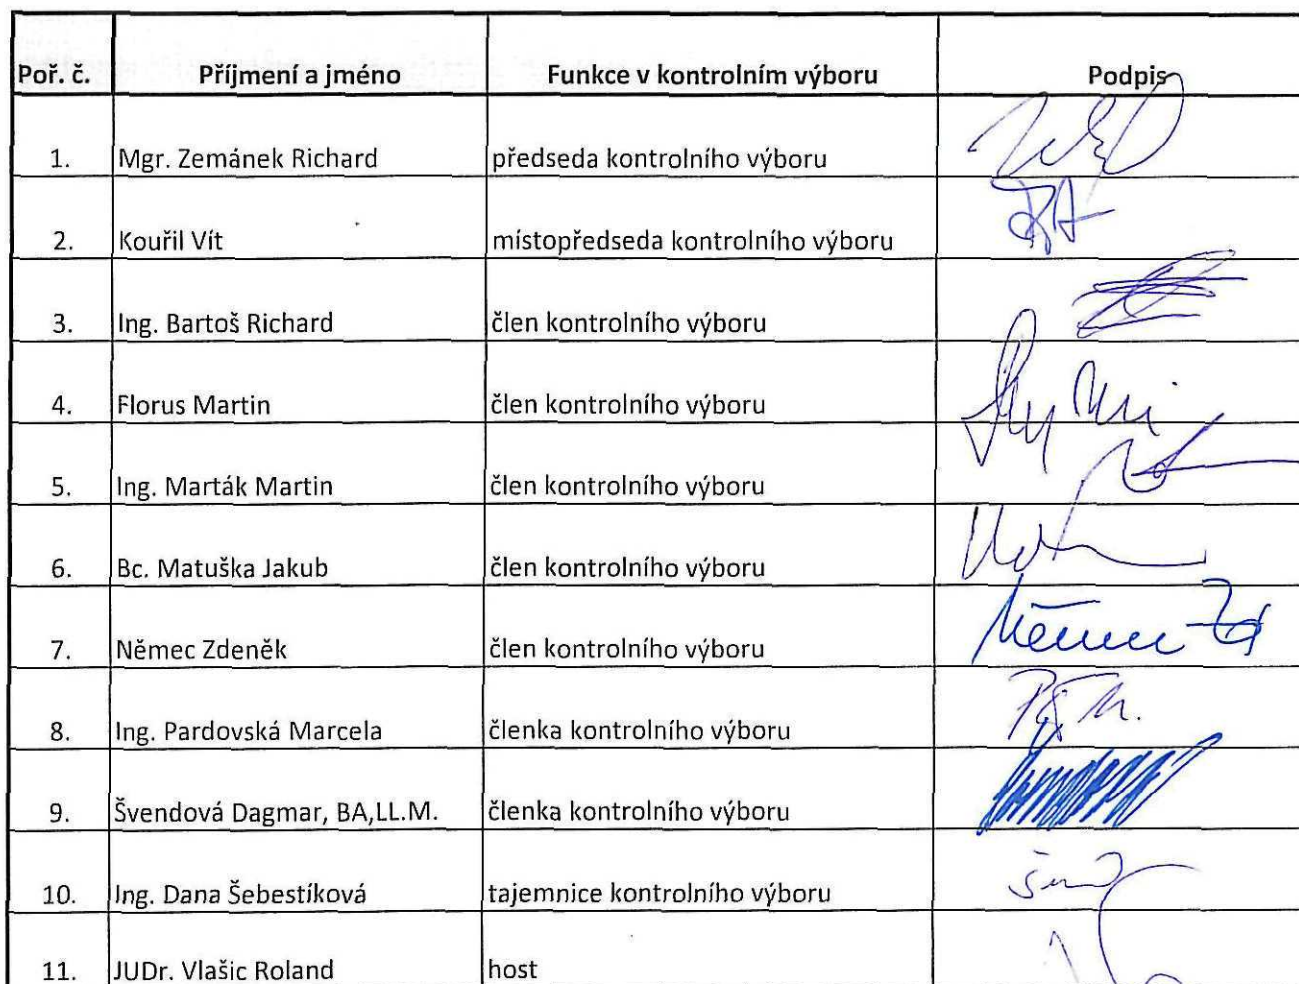 Poř. č. Příjmení a jméno Funkce v kontrolním výboru Podpis
1. Mgr. Zemánek Richard předseda kontrolního výboru
2. Kouřil Vít místopředseda kontrolního výboru
3. Ing. Bartoš Richard člen kontrolního výboru
4. Florus Martin člen kontrolního výboru
5. Ing. Marták Martin člen kontrolního výboru
6. Bc. Matuška Jakub člen kontrolního výboru
7. Němec Zdeněk člen kontrolního výboru
8. Ing. Pardovská Marcela členka kontrolního výboru
9. Švendová Dagmar, BA,LL.M. členka kontrolního výboru
10. Ing. Dana Šebestíková tajemnice kontrolního výboru
11. JUDr. Vlašic Roland host